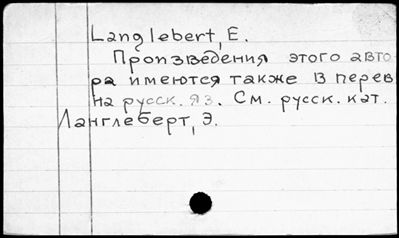 Langlebert, E.
Произведения этого авто-
ра имеются также в перев
на русск. яз. См. русск. кат.
Ланглеберт, Э.